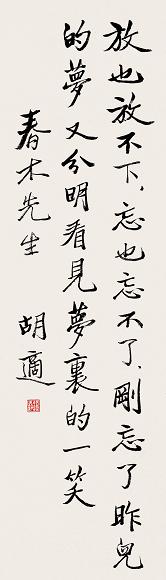 放也放不下，忘也忘不了，剛忘了昨兒
的夢又分明看見夢裏的一笑
春木先生
胡適